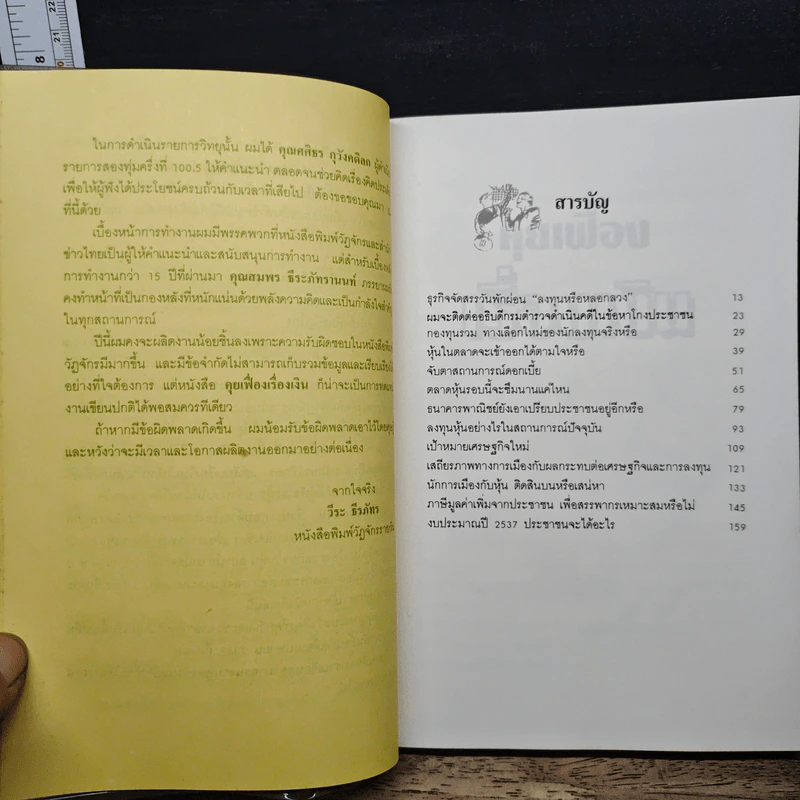 8
21
22
ในการดำเนินรายการวิทยุนั้น ผมได้ คุณศศิธร กุวังคดิลก
รายการสองทุ่มครึ่งที่ 100.5 ให้คำแนะนำ ตลอดจนช่วยคิดเรื่องคิด
เพื่อให้ผู้ฟังได้ประโยชน์ครบถ้วนกับเวลาที่เสียไป ต้องขอขอบคุณมา
ที่นี้ด้วย
เบื้องหน้าการทำงานผมมีพรรคพวกที่หนังสือพิมพ์วัฏจักรและ
ข่าวไทยเป็นผู้ให้คำแนะนำและสนับสนุนการทำงาน แต่สำหรับเบื้อง
การทำงานกว่า 15 ปีที่ผ่านมา คุณสมพร ธีระภัทรานนท์ ภรรยา
คงทำหน้าที่เป็นกองหลังที่หนักแน่นด้วยพลังความคิดและเป็นกำลังใจ
ในทุกสถานการณ์
ปีนี้ผมคงจะผลิตงานน้อยชิ้นลงเพราะความรับผิดชอบในหนังสือ
วัฏจักรมีมากขึ้น และมีข้อจำกัดไม่สามารถเก็บรวมข้อมูลและเรียบเรียง
อย่างที่ใจต้องการ แต่หนังสือ คุยเฟื่องเรื่องเงิน ก็น่าจะเป็นการ
งานเขียนปกติได้พอสมควรทีเดียว
ถ้าหากมีข้อผิดพลาดเกิดขึ้น ผมน้อมรับข้อผิดพลาดเอาไว้โดย
และหวังว่าจะมีเวลาและโอกาสผลิตงานออกมาอย่างต่อเนื่อง
จากใจจริง
วีระ ธีรภัทร
หนังสือพิมพ์วัฏจักร
สารบัญ
ธุรกิจจัดสรรวันพักผ่อน "ลงทุนหรือหลอกลวง" 13
ผมจะติดต่ออธิบดีกรมตำรวจดำเนินคดีในข้อหาโกงประชาชน 23
กองทุนรวม ทางเลือกใหม่ของนักลงทุนจริงหรือ 29
หุ้นในตลาดจะเข้าออกได้ตามใจหรือ 39
จับตาสถานการณ์ดอกเบี้ย 51
ตลาดหุ้นรอบนี้จะซึมนานแค่ไหน 65
ธนาคารพาณิชย์ยังเอาเปรียบประชาชนอยู่อีกหรือ 79
ลงทุนหุ้นอย่างไรในสถานการณ์ปัจจุบัน 93
เป้าหมายเศรษฐกิจใหม่ 109
เสถียรภาพทางการเมืองกับผลกระทบต่อเศรษฐกิจและการลงทุน 121
นักการเมืองกับหุ้น ติดสินบนหรือเสน่หา 133
ภาษีมูลค่าเพิ่มจากประชาชน เพื่อสรรพากรเหมาะสมหรือไม่ 145
งบประมาณปี 2537 ประชาชนจะได้อะไร 159